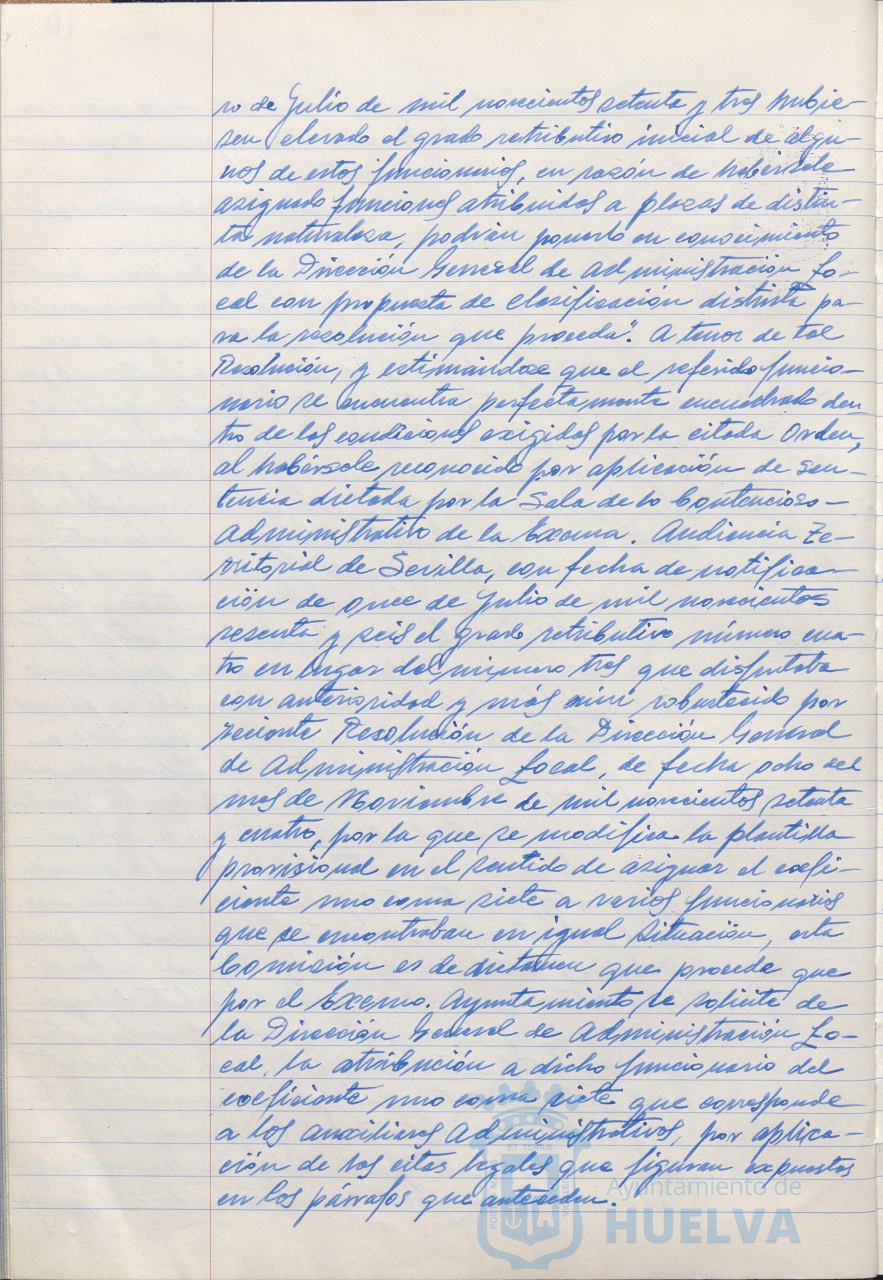 ro de Julio de mil novecientos setenta y tres hubie-
sen elevado el grado retributivo inicial de algu-
nos de estos funcionarios, en razón de habérsele
asignado funciones atribuidas a plazas de distin-
ta naturaleza, podrán ponerlo en conocimiento
de la Dirección General de Administración Lo-
cal con propuesta de clasificación distinta pa-
ra la resolución que proceda". A tenor de tal
Resolución, y estimándose que el referido funcio-
nario se encuentra perfectamente encuadrado den
tro de las condiciones exigidas por la citada Orden,
al habérsele reconocido por aplicación de Sen-
tencia dictada por la Sala de lo Contencioso-
Administrativo de la Excma. Audiencia Te-
rritorial de Sevilla, con fecha de notifica-
ción de once de Julio de mil novecientos
sesenta y seis el grado retributivo número cua-
tro en lugar del número tres que disfrutaba
con anterioridad y más aún robustecido por
reciente Resolución de la Dirección General
de Administración Local, de fecha ocho del
mes de Noviembre de mil novecientos setenta
y cuatro, por la que se modifica la plantilla
provisional en el sentido de asignar el coefi-
ciente uno coma siete a varios funcionarios
que se encontraban en igual situación, esta
Comisión es de dictamen que procede que
por el Excmo. Ayuntamiento se solicite de
la Dirección General de Administración Lo-
cal, la atribución a dicho funcionario del
coeficiente uno coma siete que corresponde
a los auxiliares Administrativos, por aplica-
ción de las citas legales que figuran expuestas
en los párrafos que anteceden.
Ayuntamiento de
HUELVA